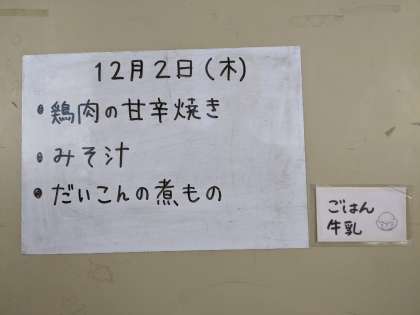 12月2日(木)
• 鶏肉の甘辛焼き
• みそ汁
• だいこんの煮もの
ごはん
牛乳